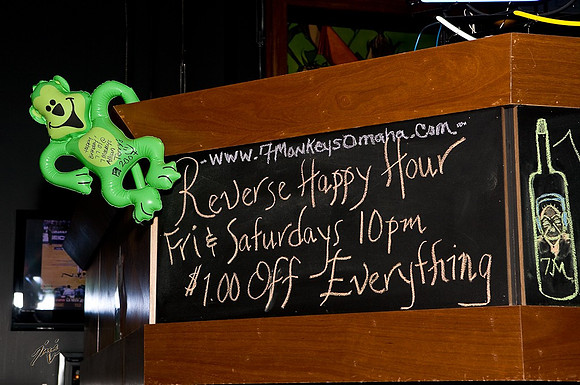 www.7MonkeysOmaha.Com
Reverse Happy Hour
Fri & Saturdays 10pm
$1.00 Off Everything
7M